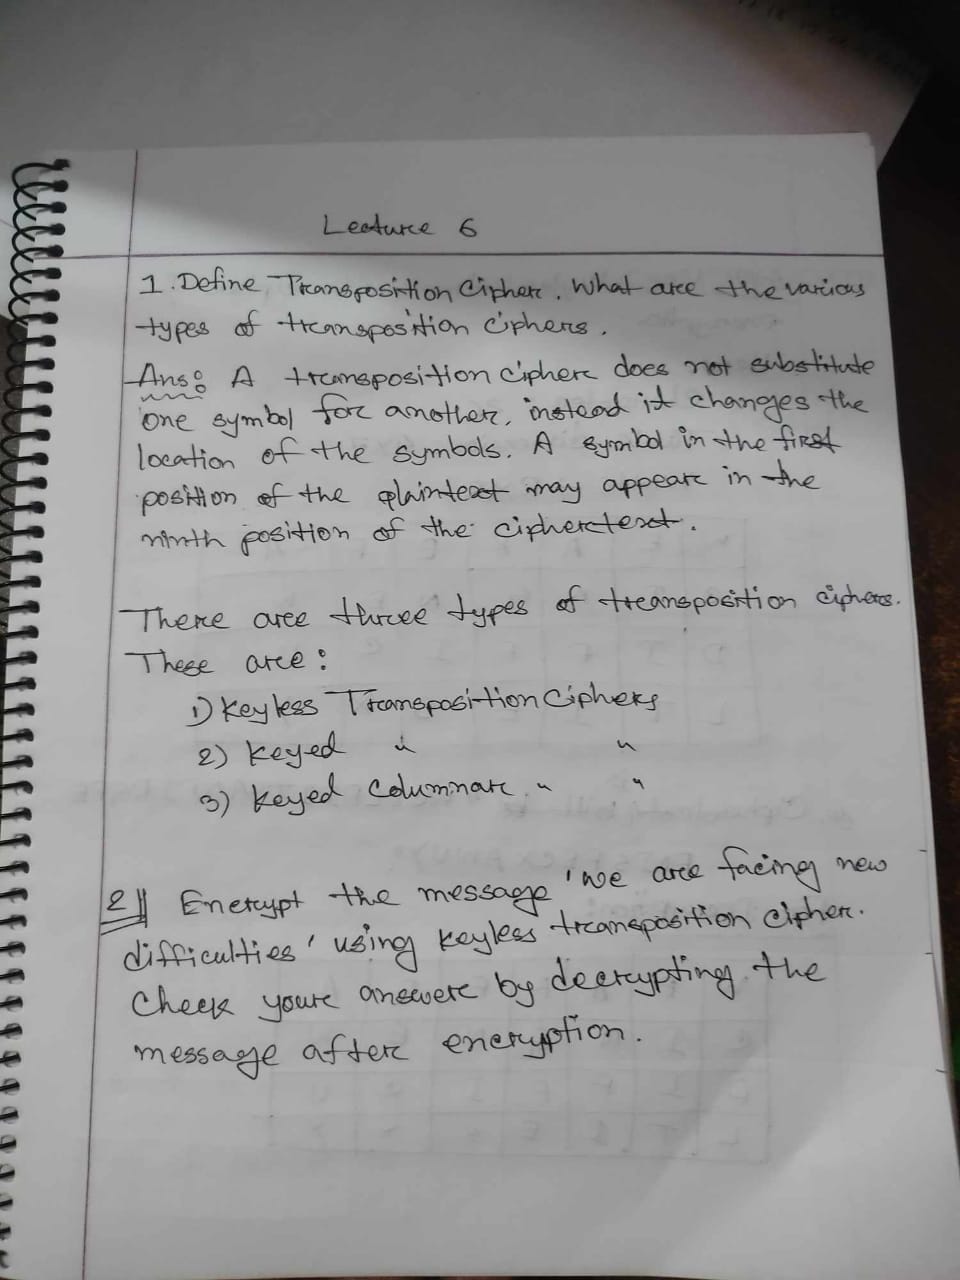 Lecture 6
1. Define Transposition Cipher. What are the various
types of transposition ciphers.
Ans: A transposition cipher does not substitute
one symbol for another, instead it changes the
location of the symbols. A symbol in the first
position of the plaintext may appear in the
ninth position of the ciphertext.
There are three types of transposition ciphers.
These are:
1) Keyless Transposition Ciphers
2) Keyed " "
3) Keyed Columnar " "
2|| Encrypt the message 'we are facing new
difficulties' using keyless transposition cipher.
Check your answer by decrypting the
message after encryption.